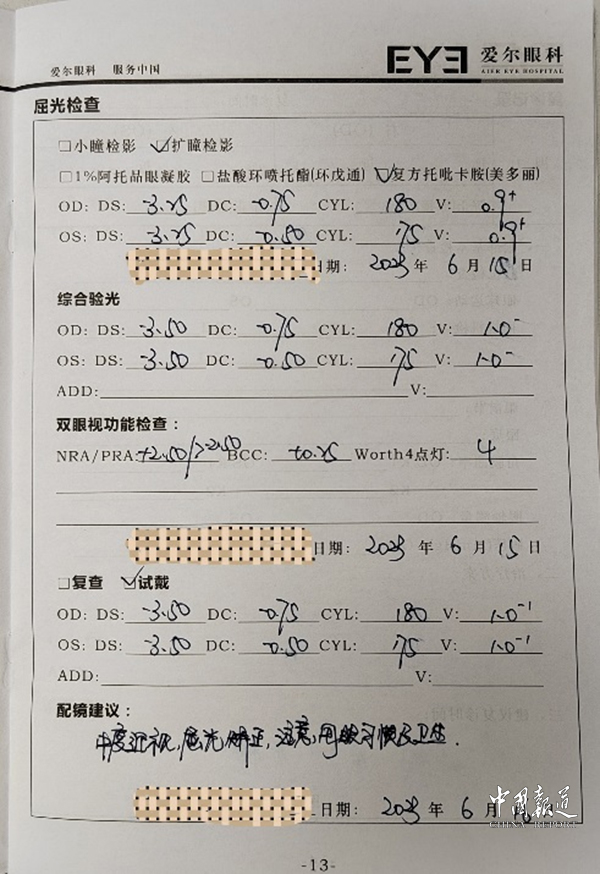 爱尔眼科 服务中国
EYE 爱尔眼科
AIER EYE HOSPITAL
屈光检查
□小瞳检影 ☑扩瞳检影
□1%阿托品眼凝胶 □盐酸环喷托酯(环戊通) ☑复方托吡卡胺(美多丽)
OD: DS: -3.25 DC: -0.75 CYL: 180 V: 0.9+
OS: DS: -3.25 DC: -0.50 CYL: 175 V: 0.9+
日期: 2025 年 6 月 15 日
综合验光
OD: DS: -3.50 DC: -0.75 CYL: 180 V: 1.0-
OS: DS: -3.50 DC: -0.50 CYL: 175 V: 1.0-
ADD: V:
双眼视功能检查:
NRA/PRA: +2.50/>-2.50 BCC: +0.25 Worth4点灯: 4
日期: 2025 年 6 月 15 日
□复查 ☑试戴
OD: DS: -3.50 DC: -0.75 CYL: 180 V: 1.0-1
OS: DS: -3.50 DC: -0.50 CYL: 175 V: 1.0-1
ADD: V:
配镜建议:
中度近视,屈光矫正,注意用眼习惯及卫生.
日期: 2025 年 6 月
中国报道
CHINA REPORT
-13-